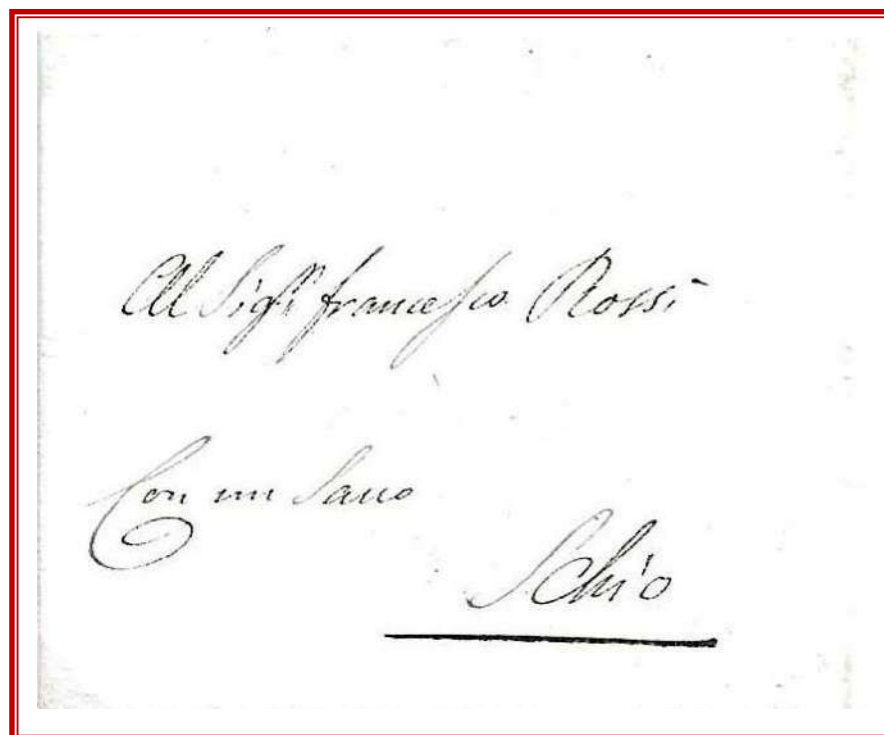 Al Sigr. Francesco Rossi
Con un Sacco
Schio